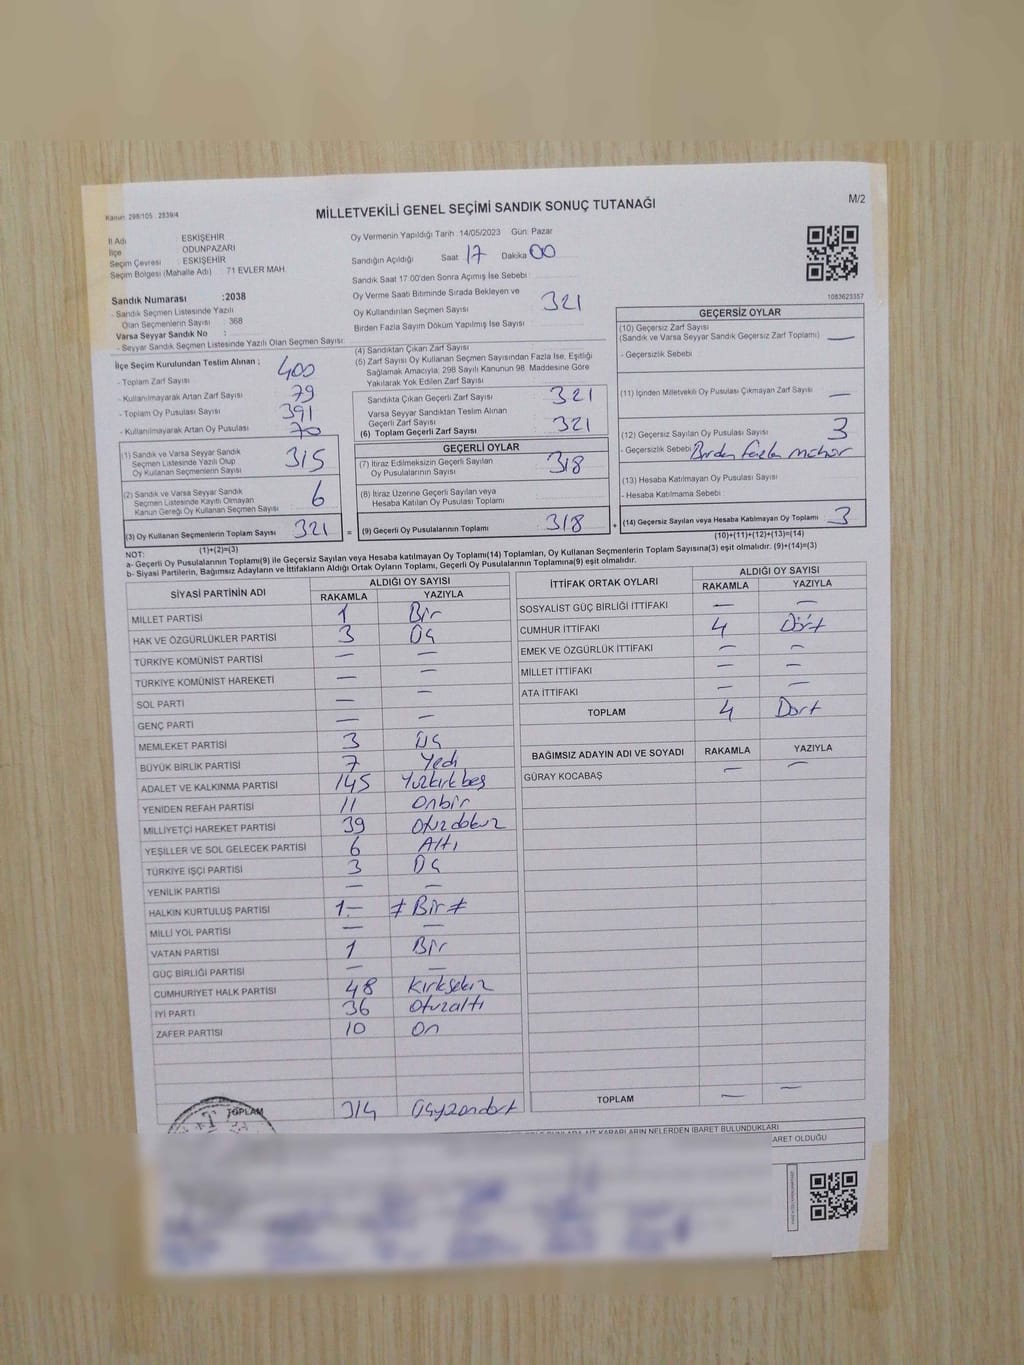 Kanun: 298/105 2839/4
MİLLETVEKİLİ GENEL SEÇİMİ SANDIK SONUÇ TUTANAĞI
M/2
İl Adı : ESKİŞEHİR
İlçe : ODUNPAZARI
Seçim Çevresi : ESKİŞEHİR
Seçim Bölgesi (Mahalle Adı) 71 EVLER MAH
Sandık Numarası :2038
- Sandık Seçmen Listesinde Yazılı
Olan Seçmenlerin Sayısı : 368
Varsa Seyyar Sandık No :
- Seyyar Sandık Seçmen Listesinde Yazılı Olan Seçmen Sayısı:
Oy Vermenin Yapıldığı Tarih 14/05/2023 Gün: Pazar
Sandığın Açıldığı Saat 17 Dakika 00
Sandık Saat 17:00'den Sonra Açımış İse Sebebi :
Oy Verme Saati Bitiminde Sırada Bekleyen ve
Oy Kullandırılan Seçmen Sayısı 321
Birden Fazla Sayım Döküm Yapılmış İse Sayısı :
1083623357
İlçe Seçim Kurulundan Teslim Alınan ;
- Toplam Zarf Sayısı 400
- Kullanılmayarak Artan Zarf Sayısı 79
- Toplam Oy Pusulası Sayısı 391
- Kullanılmayarak Artan Oy Pusulası 70
(1) Sandık ve Varsa Seyyar Sandık
Seçmen Listesinde Yazılı Olup
Oy Kullanan Seçmenlerin Sayısı 315
(2) Sandık ve Varsa Seyyar Sandık
Seçmen Listesinde Kayıtlı Olmayan
Kanun Gereği Oy Kullanan Seçmen Sayısı 6
(3) Oy Kullanan Seçmenlerin Toplam Sayısı 321 =
(1)+(2)=(3)
(4) Sandıktan Çıkan Zarf Sayısı
(5) Zarf Sayısı Oy Kullanan Seçmen Sayısından Fazla İse, Eşitliği
Sağlamak Amacıyla; 298 Sayılı Kanunun 98. Maddesine Göre
Yakılarak Yok Edilen Zarf Sayısı
Sandıkta Çıkan Geçerli Zarf Sayısı 321
Varsa Seyyar Sandıktan Teslim Alınan
Geçerli Zarf Sayısı
(6) Toplam Geçerli Zarf Sayısı 321
GEÇERLİ OYLAR
(7) İtiraz Edilmeksizin Geçerli Sayılan
Oy Pusulalarının Sayısı 318
(8) İtiraz Üzerine Geçerli Sayılan veya
Hesaba Katılan Oy Pusulası Toplamı
(9) Geçerli Oy Pusulalarının Toplamı 318 +
GEÇERSİZ OYLAR
(10) Geçersiz Zarf Sayısı
(Sandık ve Varsa Seyyar Sandık Geçersiz Zarf Toplamı) —
- Geçersizlik Sebebi
(11) İçinden Milletvekili Oy Pusulası Çıkmayan Zarf Sayısı —
(12) Geçersiz Sayılan Oy Pusulası Sayısı 3
- Geçersizlik Sebebi Birden fazla mühür
(13) Hesaba Katılmayan Oy Pusulası Sayısı
- Hesaba Katılmama Sebebi :
(14) Geçersiz Sayılan veya Hesaba Katılmayan Oy Toplamı 3
(10)+(11)+(12)+(13)=(14)
NOT:
a- Geçerli Oy Pusulalarının Toplamı(9) ile Geçersiz Sayılan veya Hesaba katılmayan Oy Toplamı(14) Toplamları, Oy Kullanan Seçmenlerin Toplam Sayısına(3) eşit olmalıdır. (9)+(14)=(3)
b- Siyasi Partilerin, Bağımsız Adayların ve İttifakların Aldığı Ortak Oyların Toplamı, Geçerli Oy Pusulalarının Toplamına(9) eşit olmalıdır.
SİYASİ PARTİNİN ADI ALDIĞI OY SAYISI
RAKAMLA YAZIYLA
MİLLET PARTİSİ 1 Bir
HAK VE ÖZGÜRLÜKLER PARTİSİ 3 Üç
TÜRKİYE KOMÜNİST PARTİSİ — —
TÜRKİYE KOMÜNİST HAREKETİ — —
SOL PARTİ — —
GENÇ PARTİ — —
MEMLEKET PARTİSİ 3 Üç
BÜYÜK BİRLİK PARTİSİ 7 Yedi
ADALET VE KALKINMA PARTİSİ 145 Yüzkırkbeş
YENİDEN REFAH PARTİSİ 11 Onbir
MİLLİYETÇİ HAREKET PARTİSİ 39 Otuzdokuz
YEŞİLLER VE SOL GELECEK PARTİSİ 6 Altı
TÜRKİYE İŞÇİ PARTİSİ 3 Üç
YENİLİK PARTİSİ — —
HALKIN KURTULUŞ PARTİSİ 1 — ≠ Bir ≠
MİLLİ YOL PARTİSİ — —
VATAN PARTİSİ 1 Bir
GÜÇ BİRLİĞİ PARTİSİ — —
CUMHURİYET HALK PARTİSİ 48 Kırksekiz
İYİ PARTİ 36 Otuzaltı
ZAFER PARTİSİ 10 On
TOPLAM 314 Üçyüzondört
İTTİFAK ORTAK OYLARI ALDIĞI OY SAYISI
RAKAMLA YAZIYLA
SOSYALİST GÜÇ BİRLİĞİ İTTİFAKI — —
CUMHUR İTTİFAKI 4 Dört
EMEK VE ÖZGÜRLÜK İTTİFAKI — —
MİLLET İTTİFAKI — —
ATA İTTİFAKI — —
TOPLAM 4 Dört
BAĞIMSIZ ADAYIN ADI VE SOYADI RAKAMLA YAZIYLA
GÜRAY KOCABAŞ — —
TOPLAM — —
KARARLARIN NELERDEN İBARET BULUNDUKLARI
ARET OLDUĞU